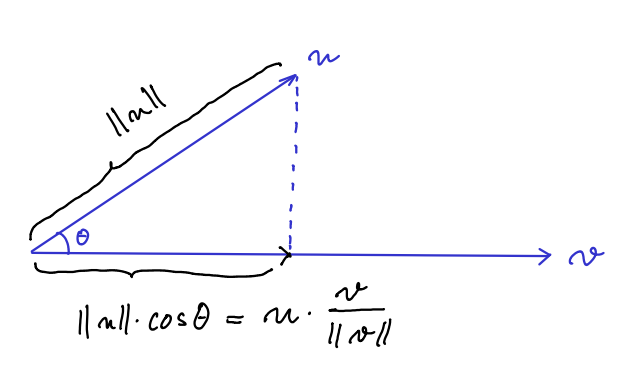 u
||u||
θ
v
||u|| · cosθ = u · v/||v||